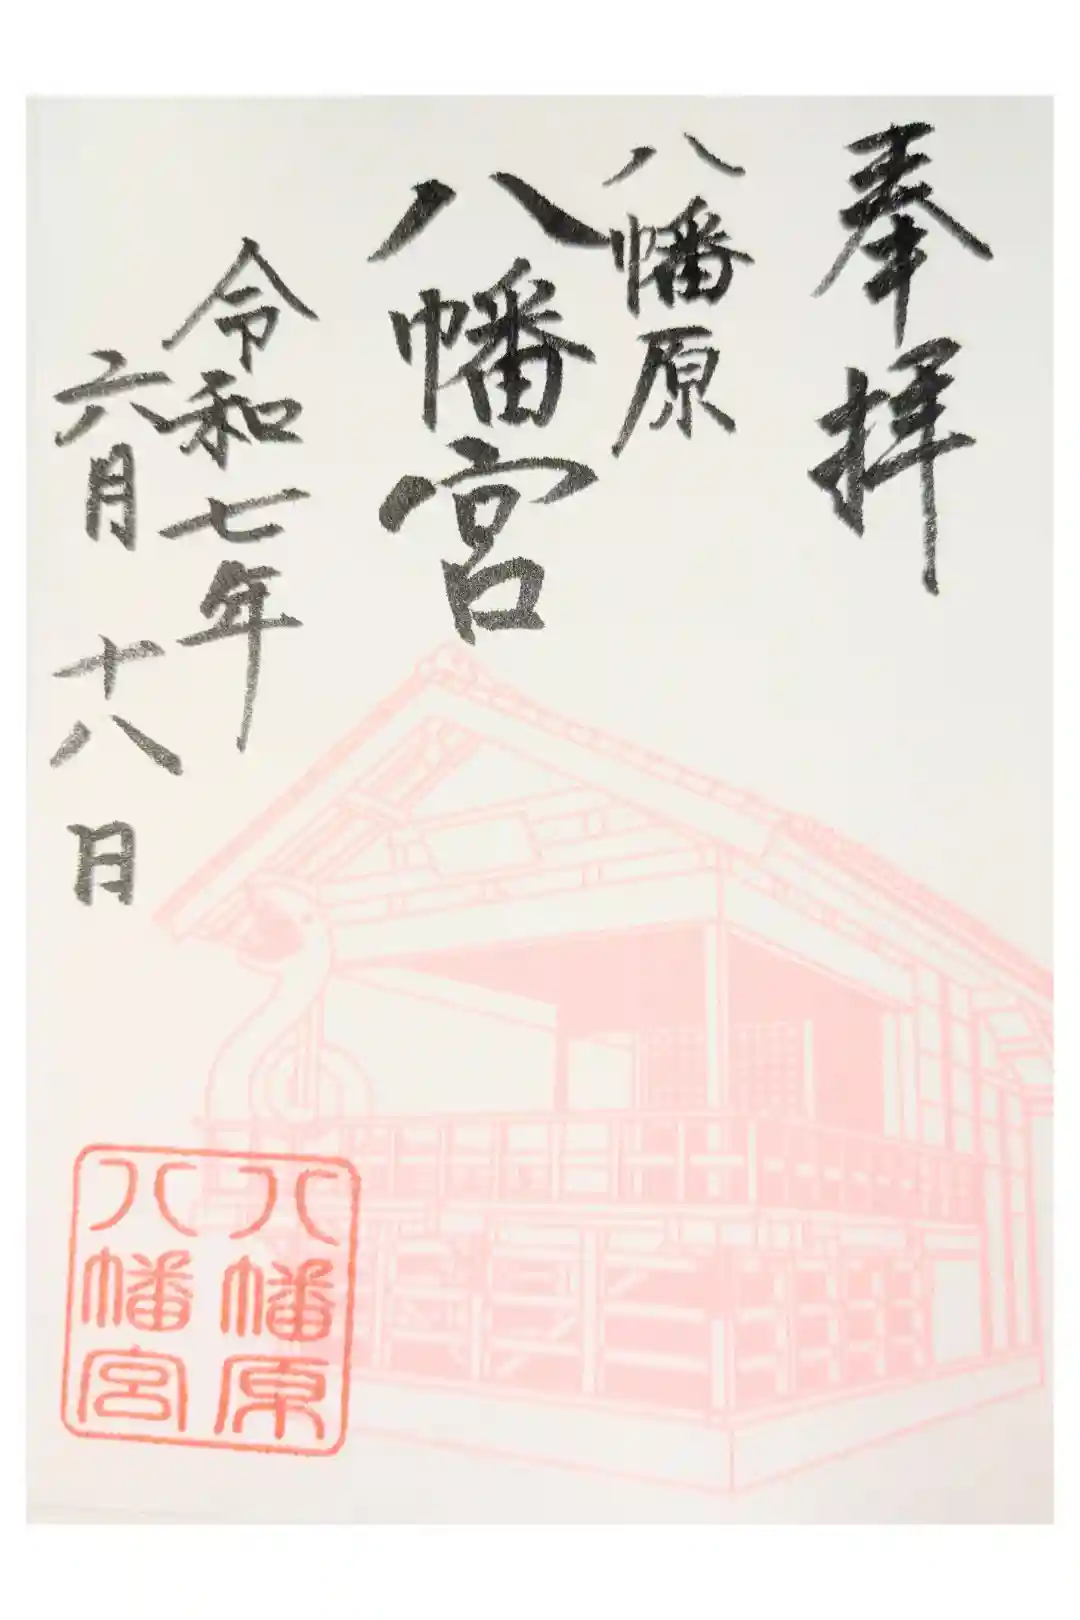 奉拝
八幡原
八幡宮
令和七年
六月十八日
八幡原
八幡宮